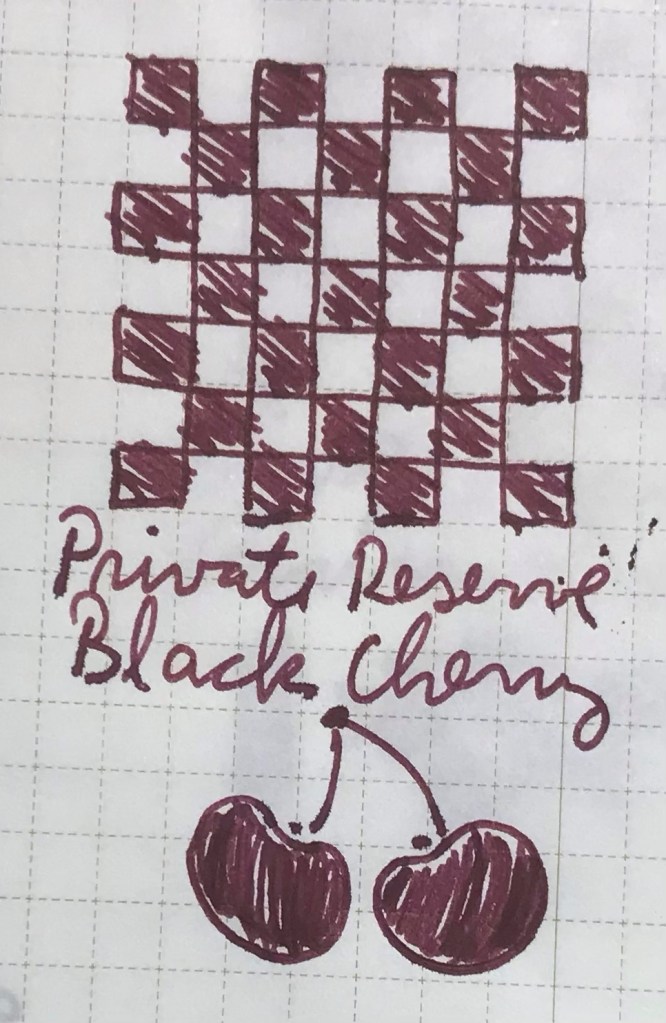 Private Reserve
Black Cherry